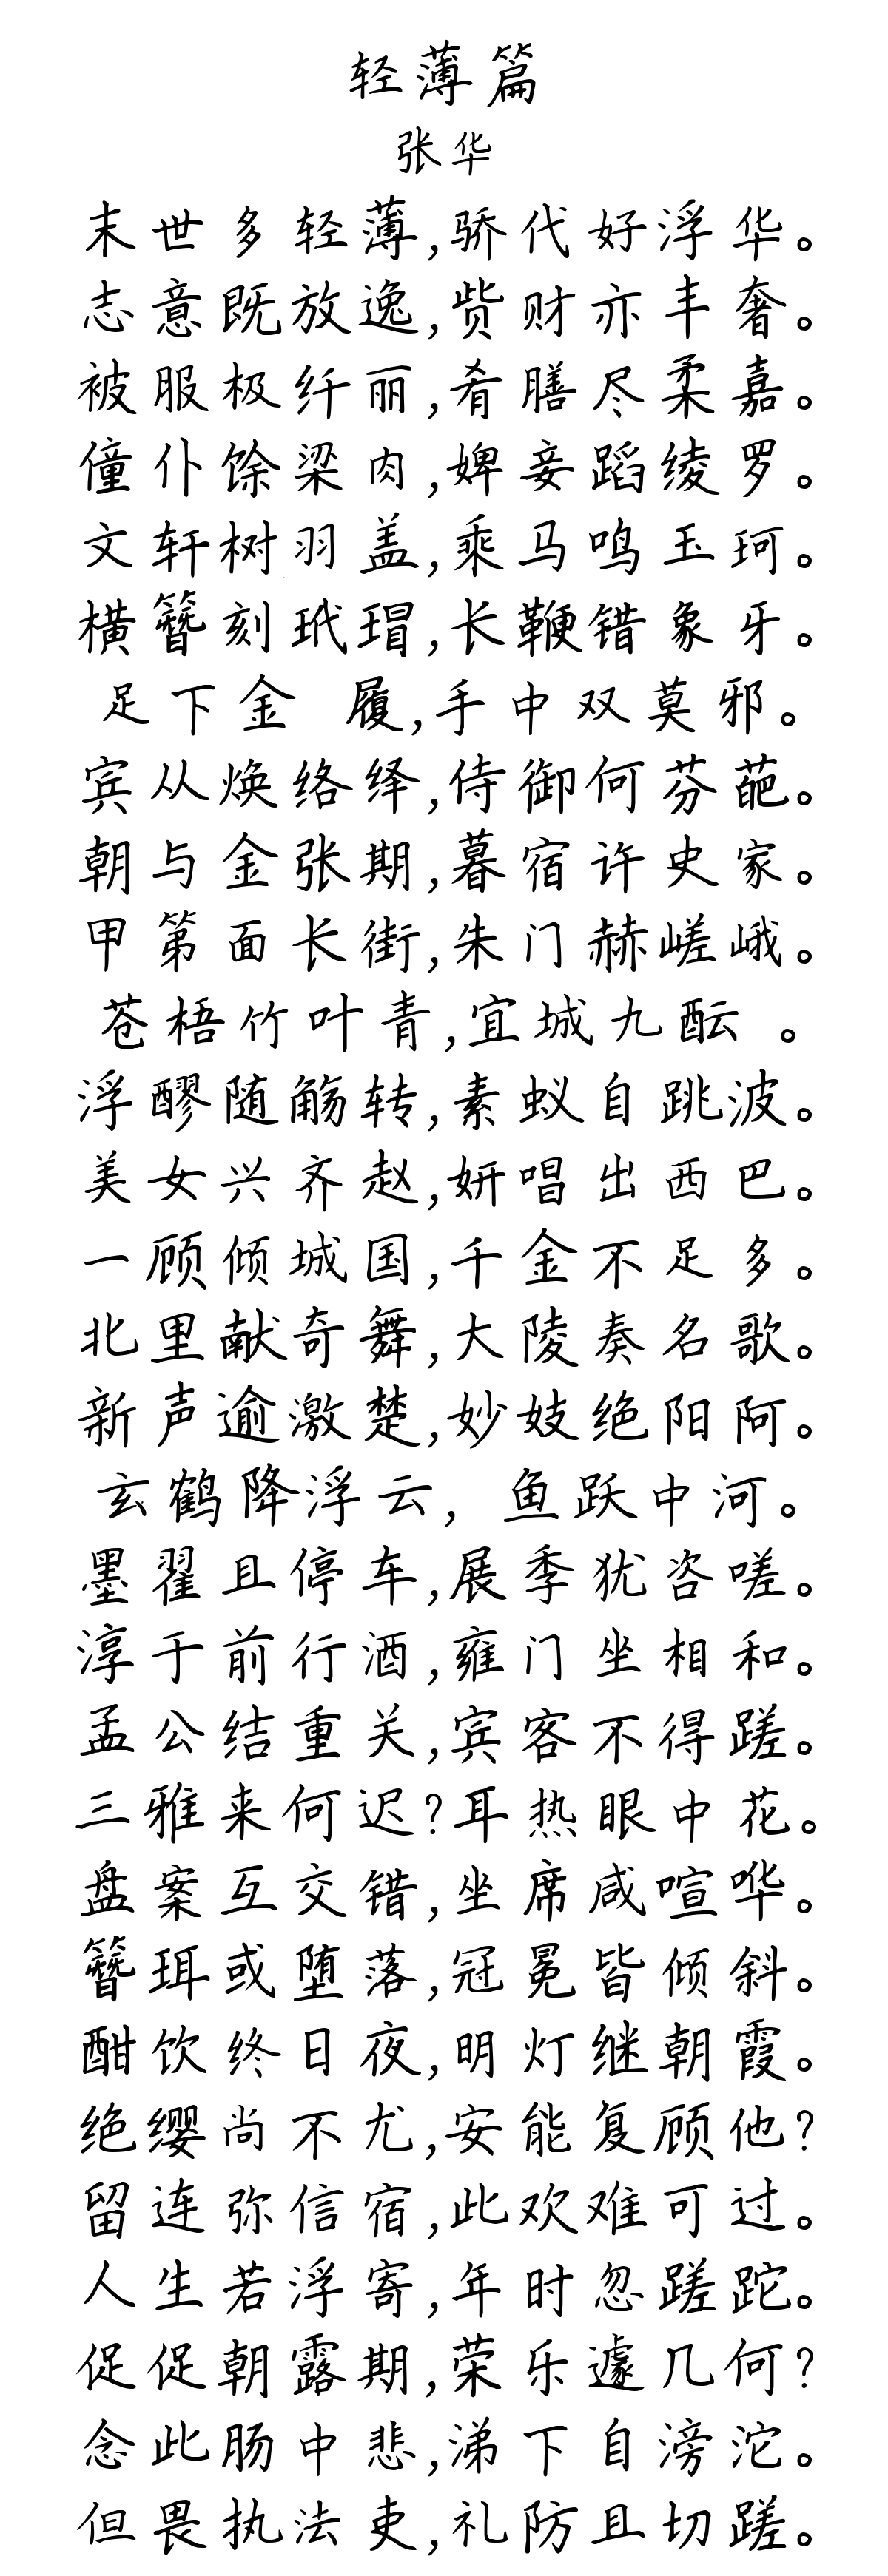 轻薄篇
张华
末世多轻薄,骄代好浮华。
志意既放逸,赀财亦丰奢。
被服极纤丽,肴膳尽柔嘉。
僮仆馀梁肉,婢妾蹈绫罗。
文轩树羽盖,乘马鸣玉珂。
横簪刻玳瑁,长鞭错象牙。
足下金 履,手中双莫邪。
宾从焕络绎,侍御何芬葩。
朝与金张期,暮宿许史家。
甲第面长街,朱门赫嵯峨。
苍梧竹叶青,宜城九酝 。
浮醪随觞转,素蚁自跳波。
美女兴齐赵,妍唱出西巴。
一顾倾城国,千金不足多。
北里献奇舞,大陵奏名歌。
新声逾激楚,妙妓绝阳阿。
玄鹤降浮云, 鱼跃中河。
墨翟且停车,展季犹咨嗟。
淳于前行酒,雍门坐相和。
孟公结重关,宾客不得蹉。
三雅来何迟?耳热眼中花。
盘案互交错,坐席咸喧哗。
簪珥或堕落,冠冕皆倾斜。
酣饮终日夜,明灯继朝霞。
绝缨尚不尤,安能复顾他?
留连弥信宿,此欢难可过。
人生若浮寄,年时忽蹉跎。
促促朝露期,荣乐遽几何?
念此肠中悲,涕下自滂沱。
但畏执法吏,礼防且切蹉。